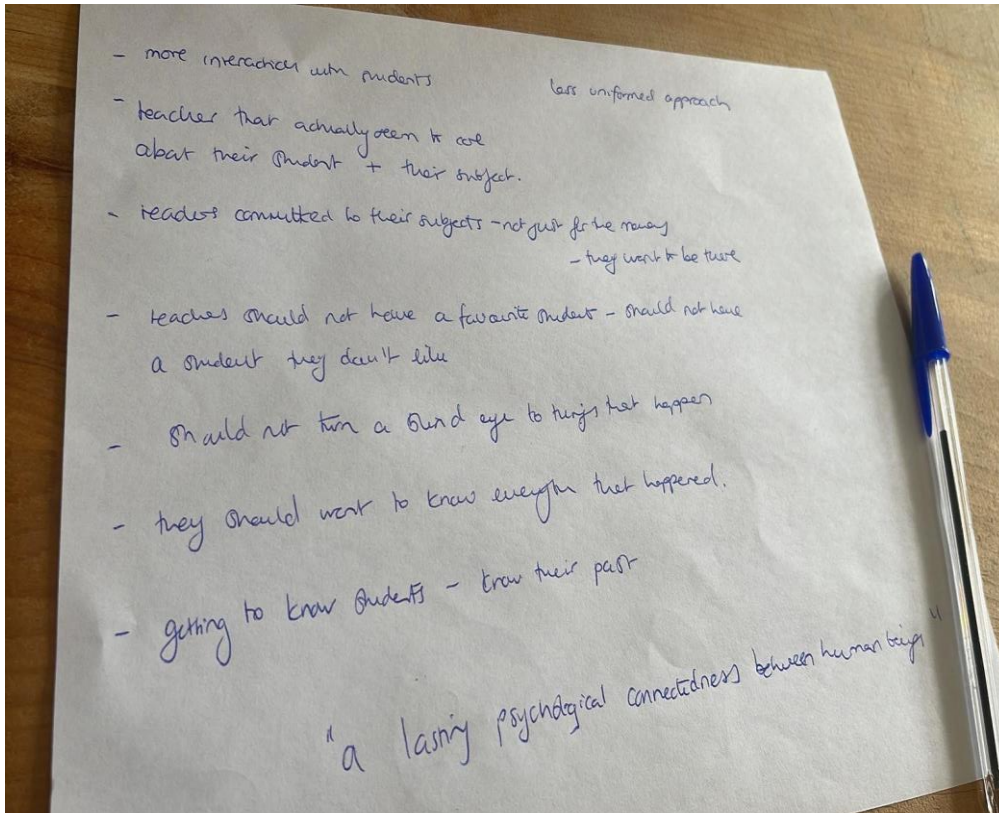 - more interaction with students
less uniformed approach
- teacher that actually seem to care
about their student + their subject.
- teachers committed to their subjects - not just for the money
- they want to be there
- teaches should not have a favourite student - should not have
a student they don't like
- should not turn a blind eye to things that happen
- they should want to know everythin that happened.
- getting to know students - know their past
"a lasting psychological connectedness between human beings"